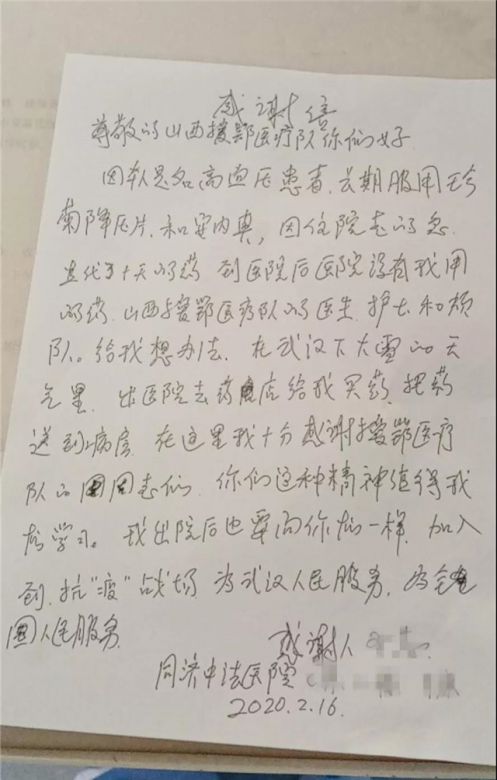 感谢信
尊敬的山西援鄂医疗队你们好
因本人是名高血压患者,长期服用珍
菊降压片.和安内真,因住院走的急.
只代了十天的药 到医院后医院没有我用
的药.山西援鄂医疗队的医生.护士和领
队。给我想办法.在武汉下大雪的天
气里.出医院去药店给我买药.把药
送到病房.在这里我十分感谢援鄂医疗
队的同志们.你们这种精神值得我
们学习。我出院后也要向你们一样.加入
到.抗“疫”战场 为武汉人民服务.为全
国人民服务.
感谢人
同济中法医院
2020.2.16.